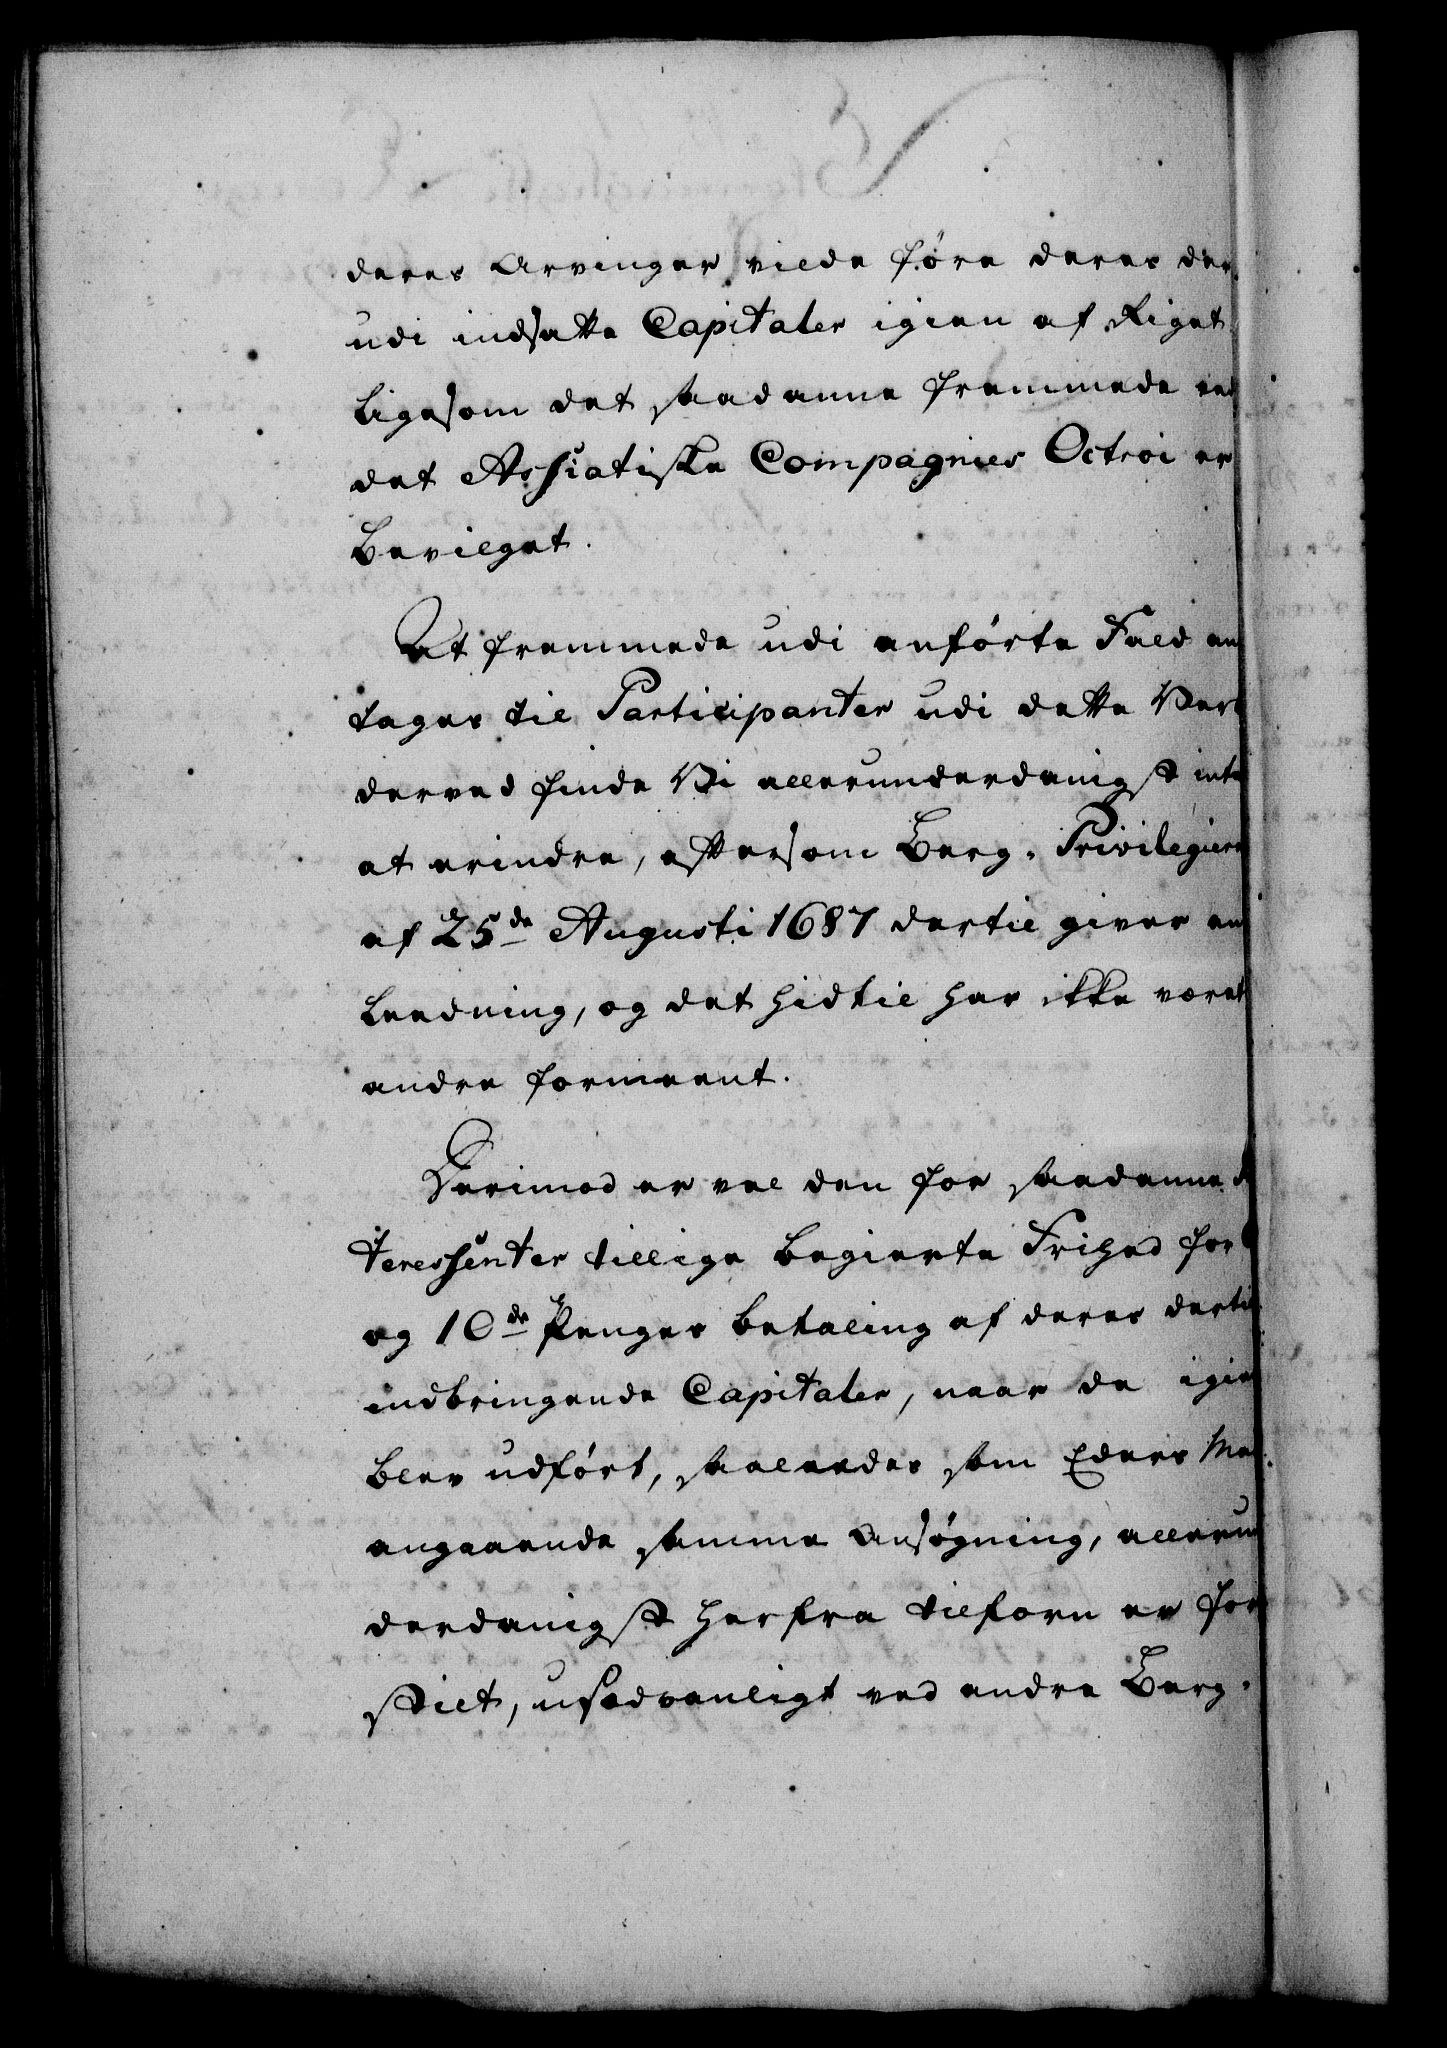 deres Arvinger vilde føre deres der-
udi indsatte Capitaler igien af Riget
ligesom det saadanne fremmede ved
det Assiatiske Compagnies Octroi er
bevilget.
At fremmede udi anførte Fald an
tages til Participanter udi dette Verk
derved finde Vi allerunderdanigst intet
at erindre, eftersom Berg-Privilegierne
af 25de Augusti 1687 dertil giver an
ledning, og det hidtil har ikke været
andre formeent.
Derimod er vel den for saadanne In
teressenter tillige begierte Frihed for
og 10de Penges betaling af deres dertil
indbringende Capitaler, naar de igien
blev udført, saaledes som Eders Maj.
angaaende samme Ansøgning, allerun
derdanigst herfra tilforn er fore
stilt, usædvanligt ved andre Berg-